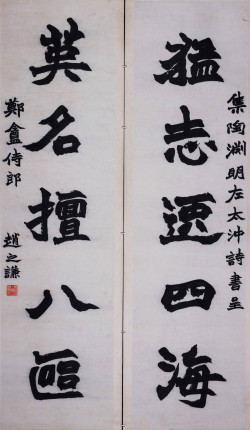 集陶淵明左太沖詩書呈
猛志逸四海
英名擅八區
鄭盦侍郎
趙之謙